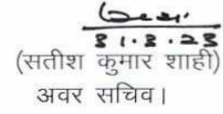 31.8.23
(सतीश कुमार शाही)
अवर सचिव।